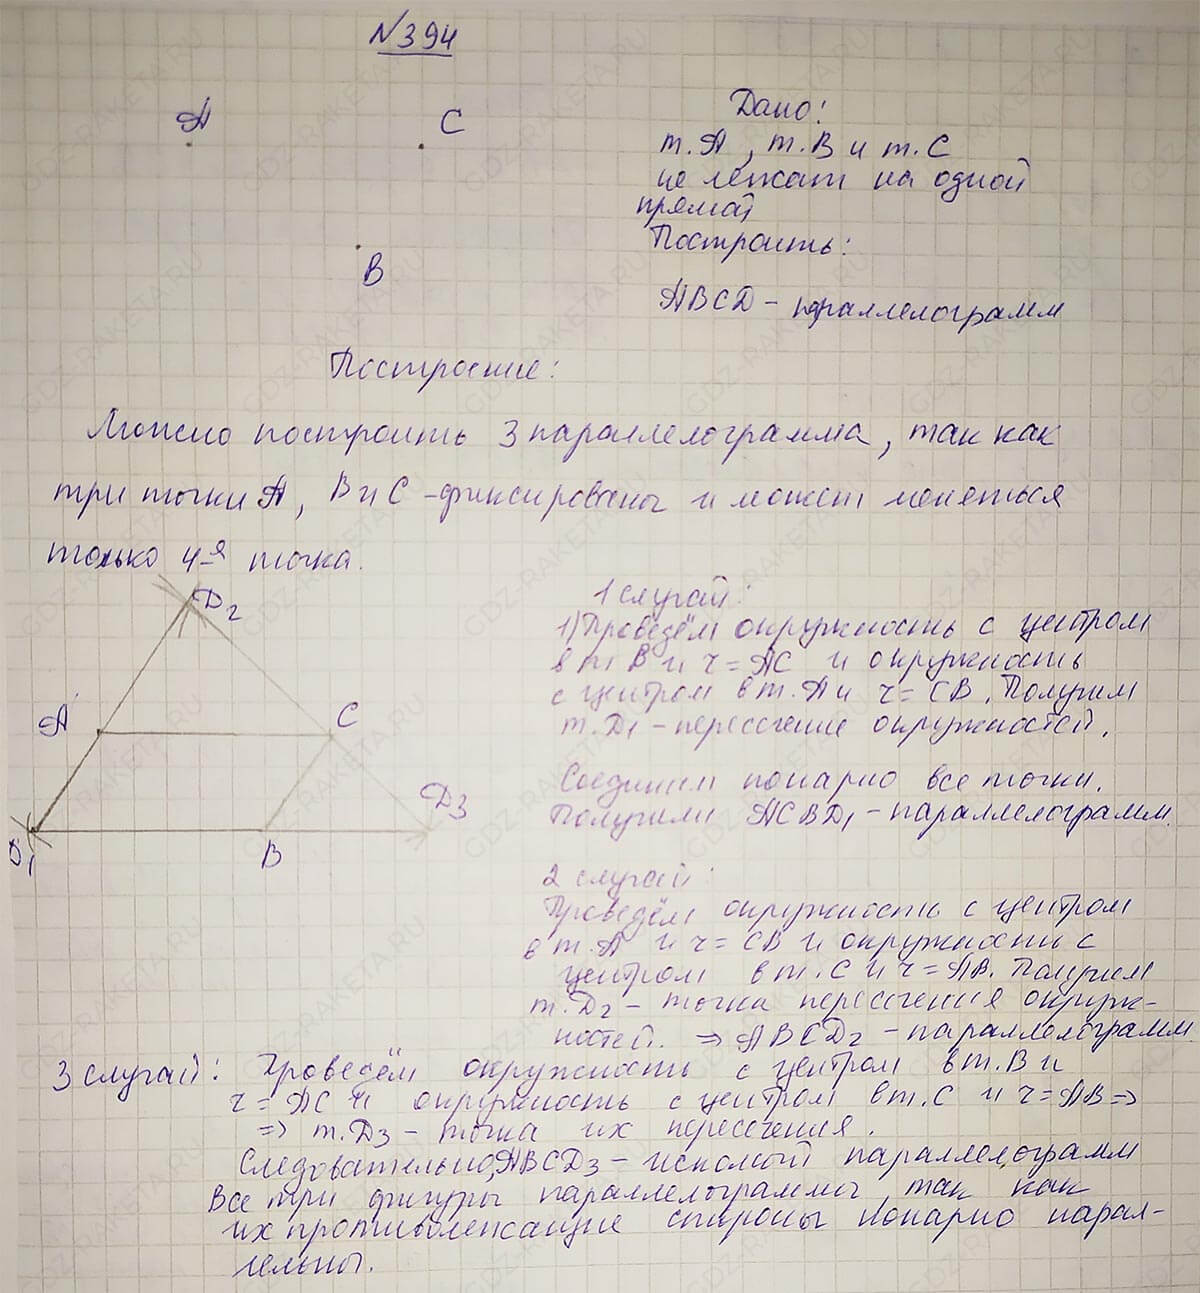 N394
А
С
В
Дано:
т.А, т.В и т.С
не лежат на одной
прямой
Построить:
АВСD – параллелограмм
Построение:
Можно построить 3 параллелограмма, так как
три точки А, В и С – фиксированы и может меняться
только 4-я точка.
D2
А
С
D3
D1
В
1 случай:
1) Проведём окружность с центром
в т. В и r = АС и окружность
с центром в т. А и r = СВ. Получим
т. D1 – пересечение окружностей.
Соединим попарно все точки.
Получили АСВD1 – параллелограмм.
2 случай:
Проведём окружность с центром
в т. А и r = СВ и окружность с
центром в т. С и r = АВ. Получим
т. D2 – точка пересечения окруж-
ностей. ⇒ АВСD2 – параллелограмм.
3 случай: Проведём окружность с центром в т. В и
r = АС и окружность с центром в т. С и r = АВ ⇒
⇒ т. D3 – точка их пересечения.
Следовательно, АВСD3 – искомый параллелограмм
Все три фигуры параллелограммы, так как
их противолежащие стороны попарно парал-
лельны.
GDZ-RAKETA.RU